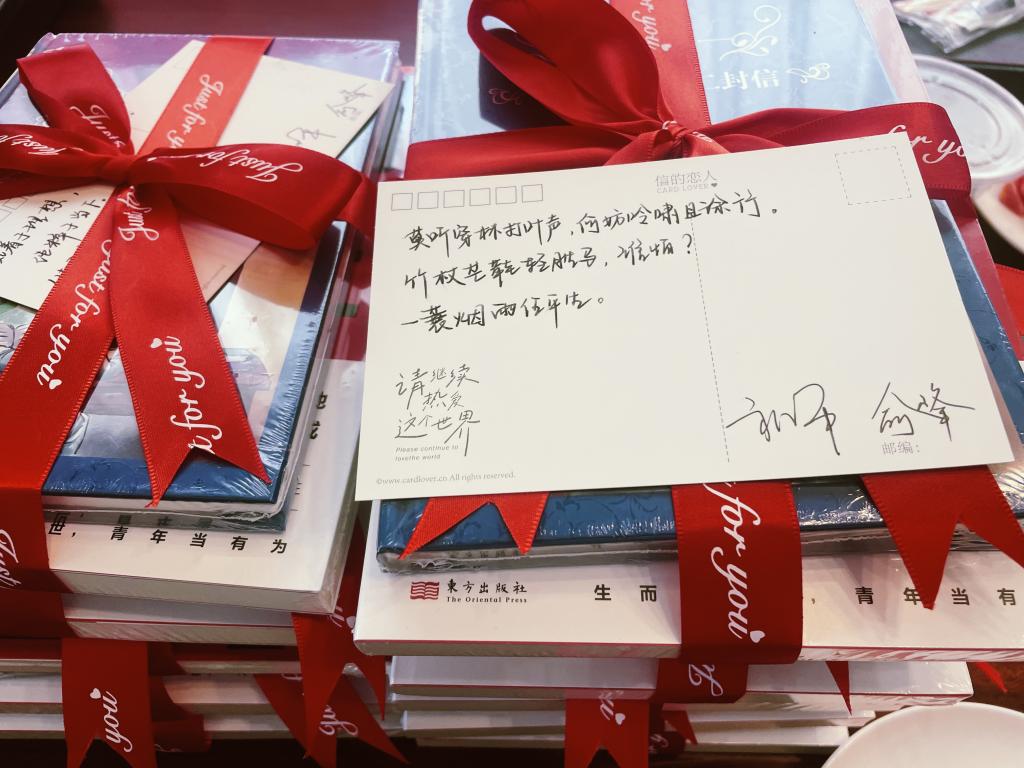 Just for you
Just for you
Just for you
Just for you
for you
for you
信封
信的恋人
CARD LOVER
莫听穿林打叶声,何妨吟啸且徐行。
竹杖芒鞋轻胜马,谁怕?
一蓑烟雨任平生。
请继续
热爱
这个世界
Please continue to
lovethe world
俞峰
邮编:
©www.cardlover.co All rights reserved.
for you
世,青年当有为
東方出版社
The Oriental Press
生而
,青年当有
you